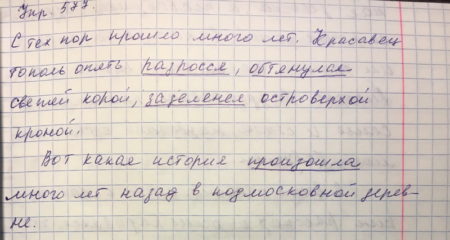 Упр. 577.
С тех пор прошло много лет. Красавец
тополь опять разросся, обтянулся
свежей корой, зазеленел островерхой
кроной.
Вот какая история произошла
много лет назад в подмосковной дерев-
не.